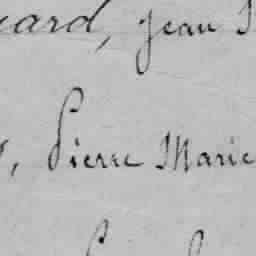 ard, Jean
, Pierre Marie